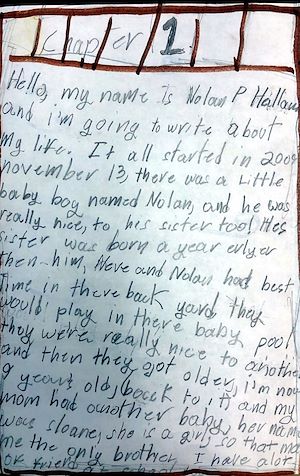 Chapter 1
Hello, my name is Nolan P
and i'm going to write about
my life. It all started in 2009
november 13, there was a Little
baby boy named Nolan, and he was
really nice, to his sister too! Hes
sister was born a year erlyer
then him, Heve and Nolan had best
time in there back yard they
would play in there baby pool
they were really nice to another
and then they got older, I'm now
9 years old, back to it, and my
mom had another baby, her name
was Sloane, she is a girl, so that
me the only brother, I have alot
or friend